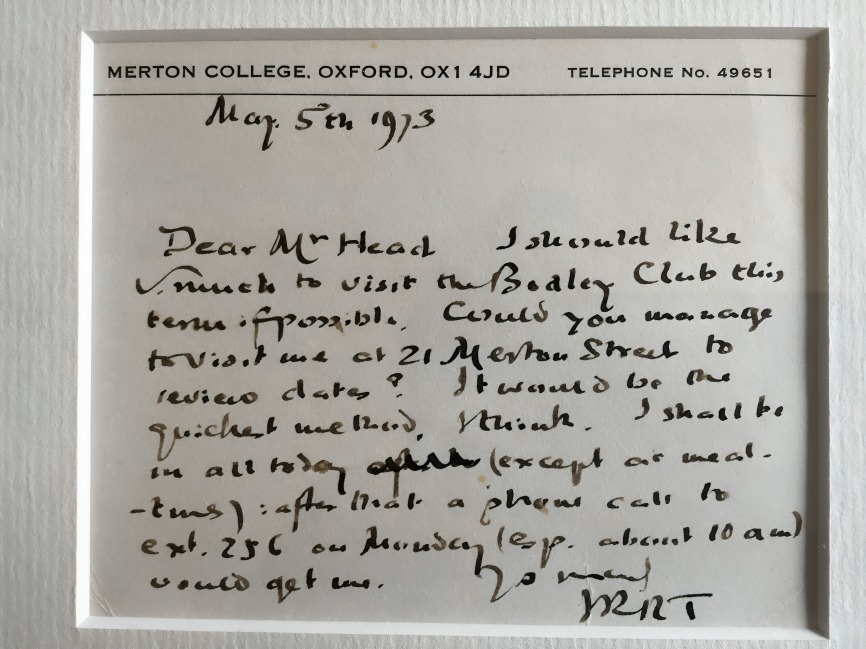 MERTON COLLEGE, OXFORD, OX1 4JD TELEPHONE No. 49651
May. 5th 1973
Dear Mr Head I should like
v. much to visit the Bodley Club this
term if possible. Could you manage
to visit me at 21 Merton Street to
review dates? It would be the
quickest method, I think. I shall be
in all today (except at meal-
-times) : after that a phone call to
ext. 256 on Monday (esp. about 10 am)
would get me.
JRRT